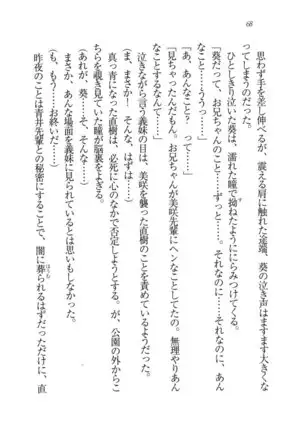 68
思わず手を差し伸べるが、震える肩に触れた途端、葵の泣き声はますます大きくな
ってしまうのだった。
ひとしきり泣いた葵は、濡れた瞳で拗ねたようににらみつけてくる。
「葵だって、お兄ちゃんのこと……ずっと……。それなのに……それなのに、あん
なこと……ううっ……」
「あ、あんなこと？　って……」
「見ちゃったんだもん。お兄ちゃんが美咲先輩にヘンなことしてた……。無理やりあん
なことするなんて……」
泣きながら言う義妹の目は、美咲を襲った直樹のことを責めているようだった。
（まさか、そんな、はず……）
真っ青になった直樹は、必死に心のなかで否定しようとする。が、公園の外からこ
ちらを覗き見ていた瞳が脳裏をよぎる。
（あれが、葵……そ、そんな……）
まさか、あんな場面を義妹に見られているとは思いもしなかった。
（も、もう、お終いだ……）
昨夜のことは青井先輩との秘密にすることで、闇に葬られるはずだっただけに、直